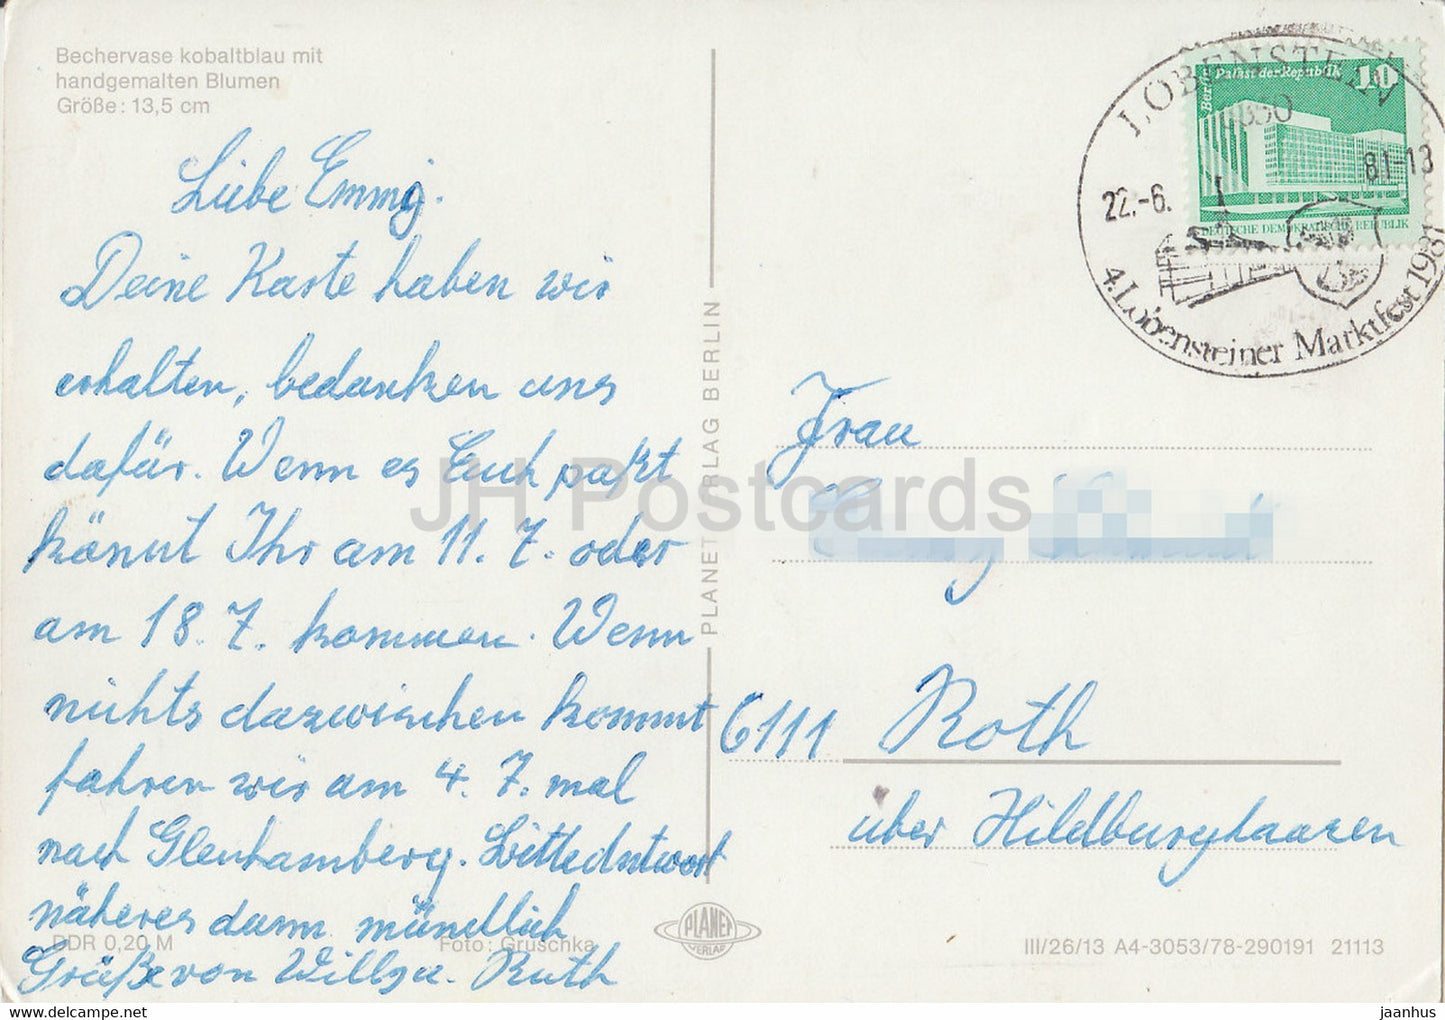 Bechervase kobaltblau mit
handgemalten Blumen
Größe: 13,5 cm
Liebe Emmy.
Deine Karte haben wir
erhalten, bedanken uns
dafür. Wenn es Euch paßt
könnt Ihr am 11. 7. oder
am 18. 7. kommen. Wenn
nichts dazwischen kommt
fahren wir am 4. 7. mal
nach Gleichamberg. Bitte Antwort
näheres dann mündlich
Grüße von Willy u. Ruth
DDR 0,20 M
Foto: Gruschka
PLANET VERLAG BERLIN
PLANET
VERLAG
LOBENSTEIN
6850
22.-6. 81-13
4. Lobensteiner Marktfest 1981
Berlin Palast der Republik 10
DEUTSCHE DEMOKRATISCHE REPUBLIK
Frau
6111 Roth
über Hildburghausen
III/26/13 A4-3053/78-290191 21113
JH Postcards
jaanhus
www.delcampe.net